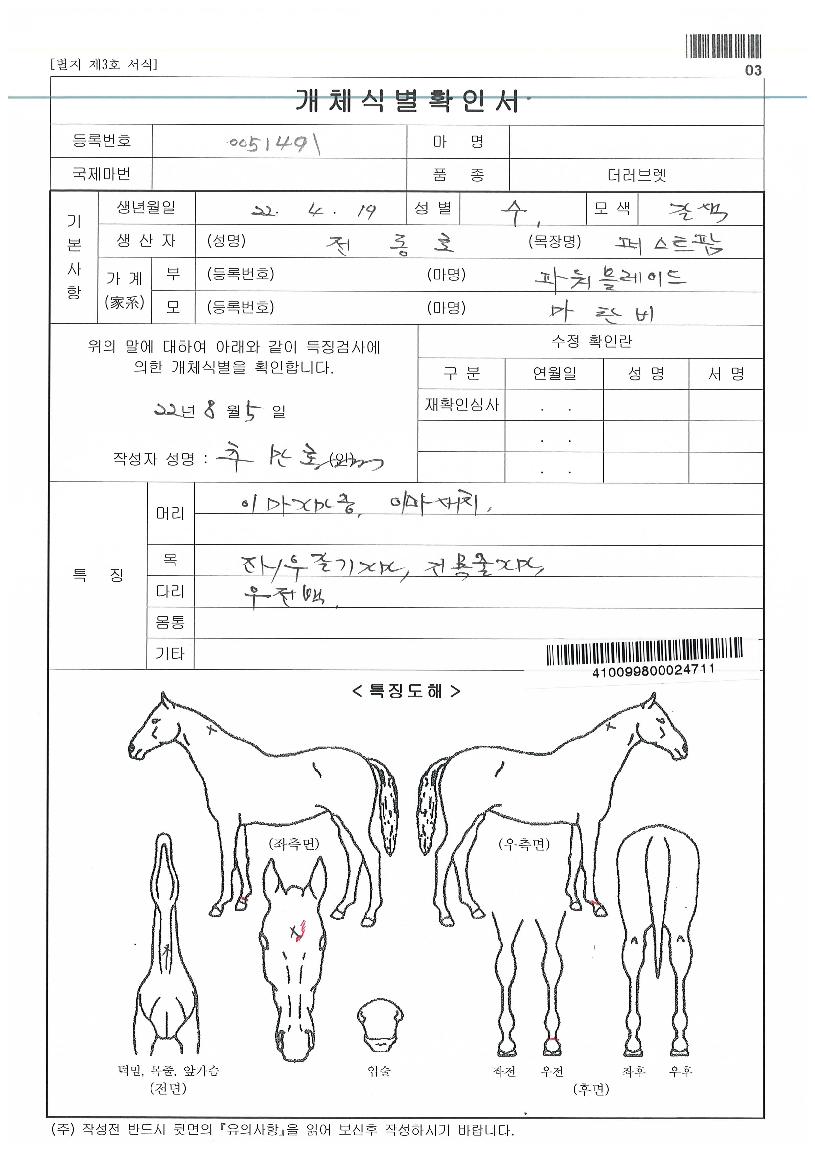 [별지 제3호 서식]
03
개체식별확인서
등록번호 0051491 마 명
국제마번 품 종 더러브렛
기본사항
생년월일 22. 4. 19 성별 수 모색 갈색
생산자 (성명) 전 동 호 (목장명) 퍼스트팜
가계(家系) 부 (등록번호) (마명) 파워블레이드
모 (등록번호) (마명) 마 란 비
위의 말에 대하여 아래와 같이 특징검사에
의한 개체식별을 확인합니다.
22년 8월 5일
작성자 성명 :
수정 확인란
구분 연월일 성명 서명
재확인심사 . .
. .
. .
특 징
머리 이마가마중,
목 좌/우
다리 우전백
몸통
기타
410099800024711
< 특징도해 >
(좌측면) (우측면)
턱밑, 목줄, 앞가슴 입술 좌전 우전 좌후 우후
(전면) (후면)
(주) 작성전 반드시 뒷면의 『유의사항』을 읽어 보신후 작성하시기 바랍니다.